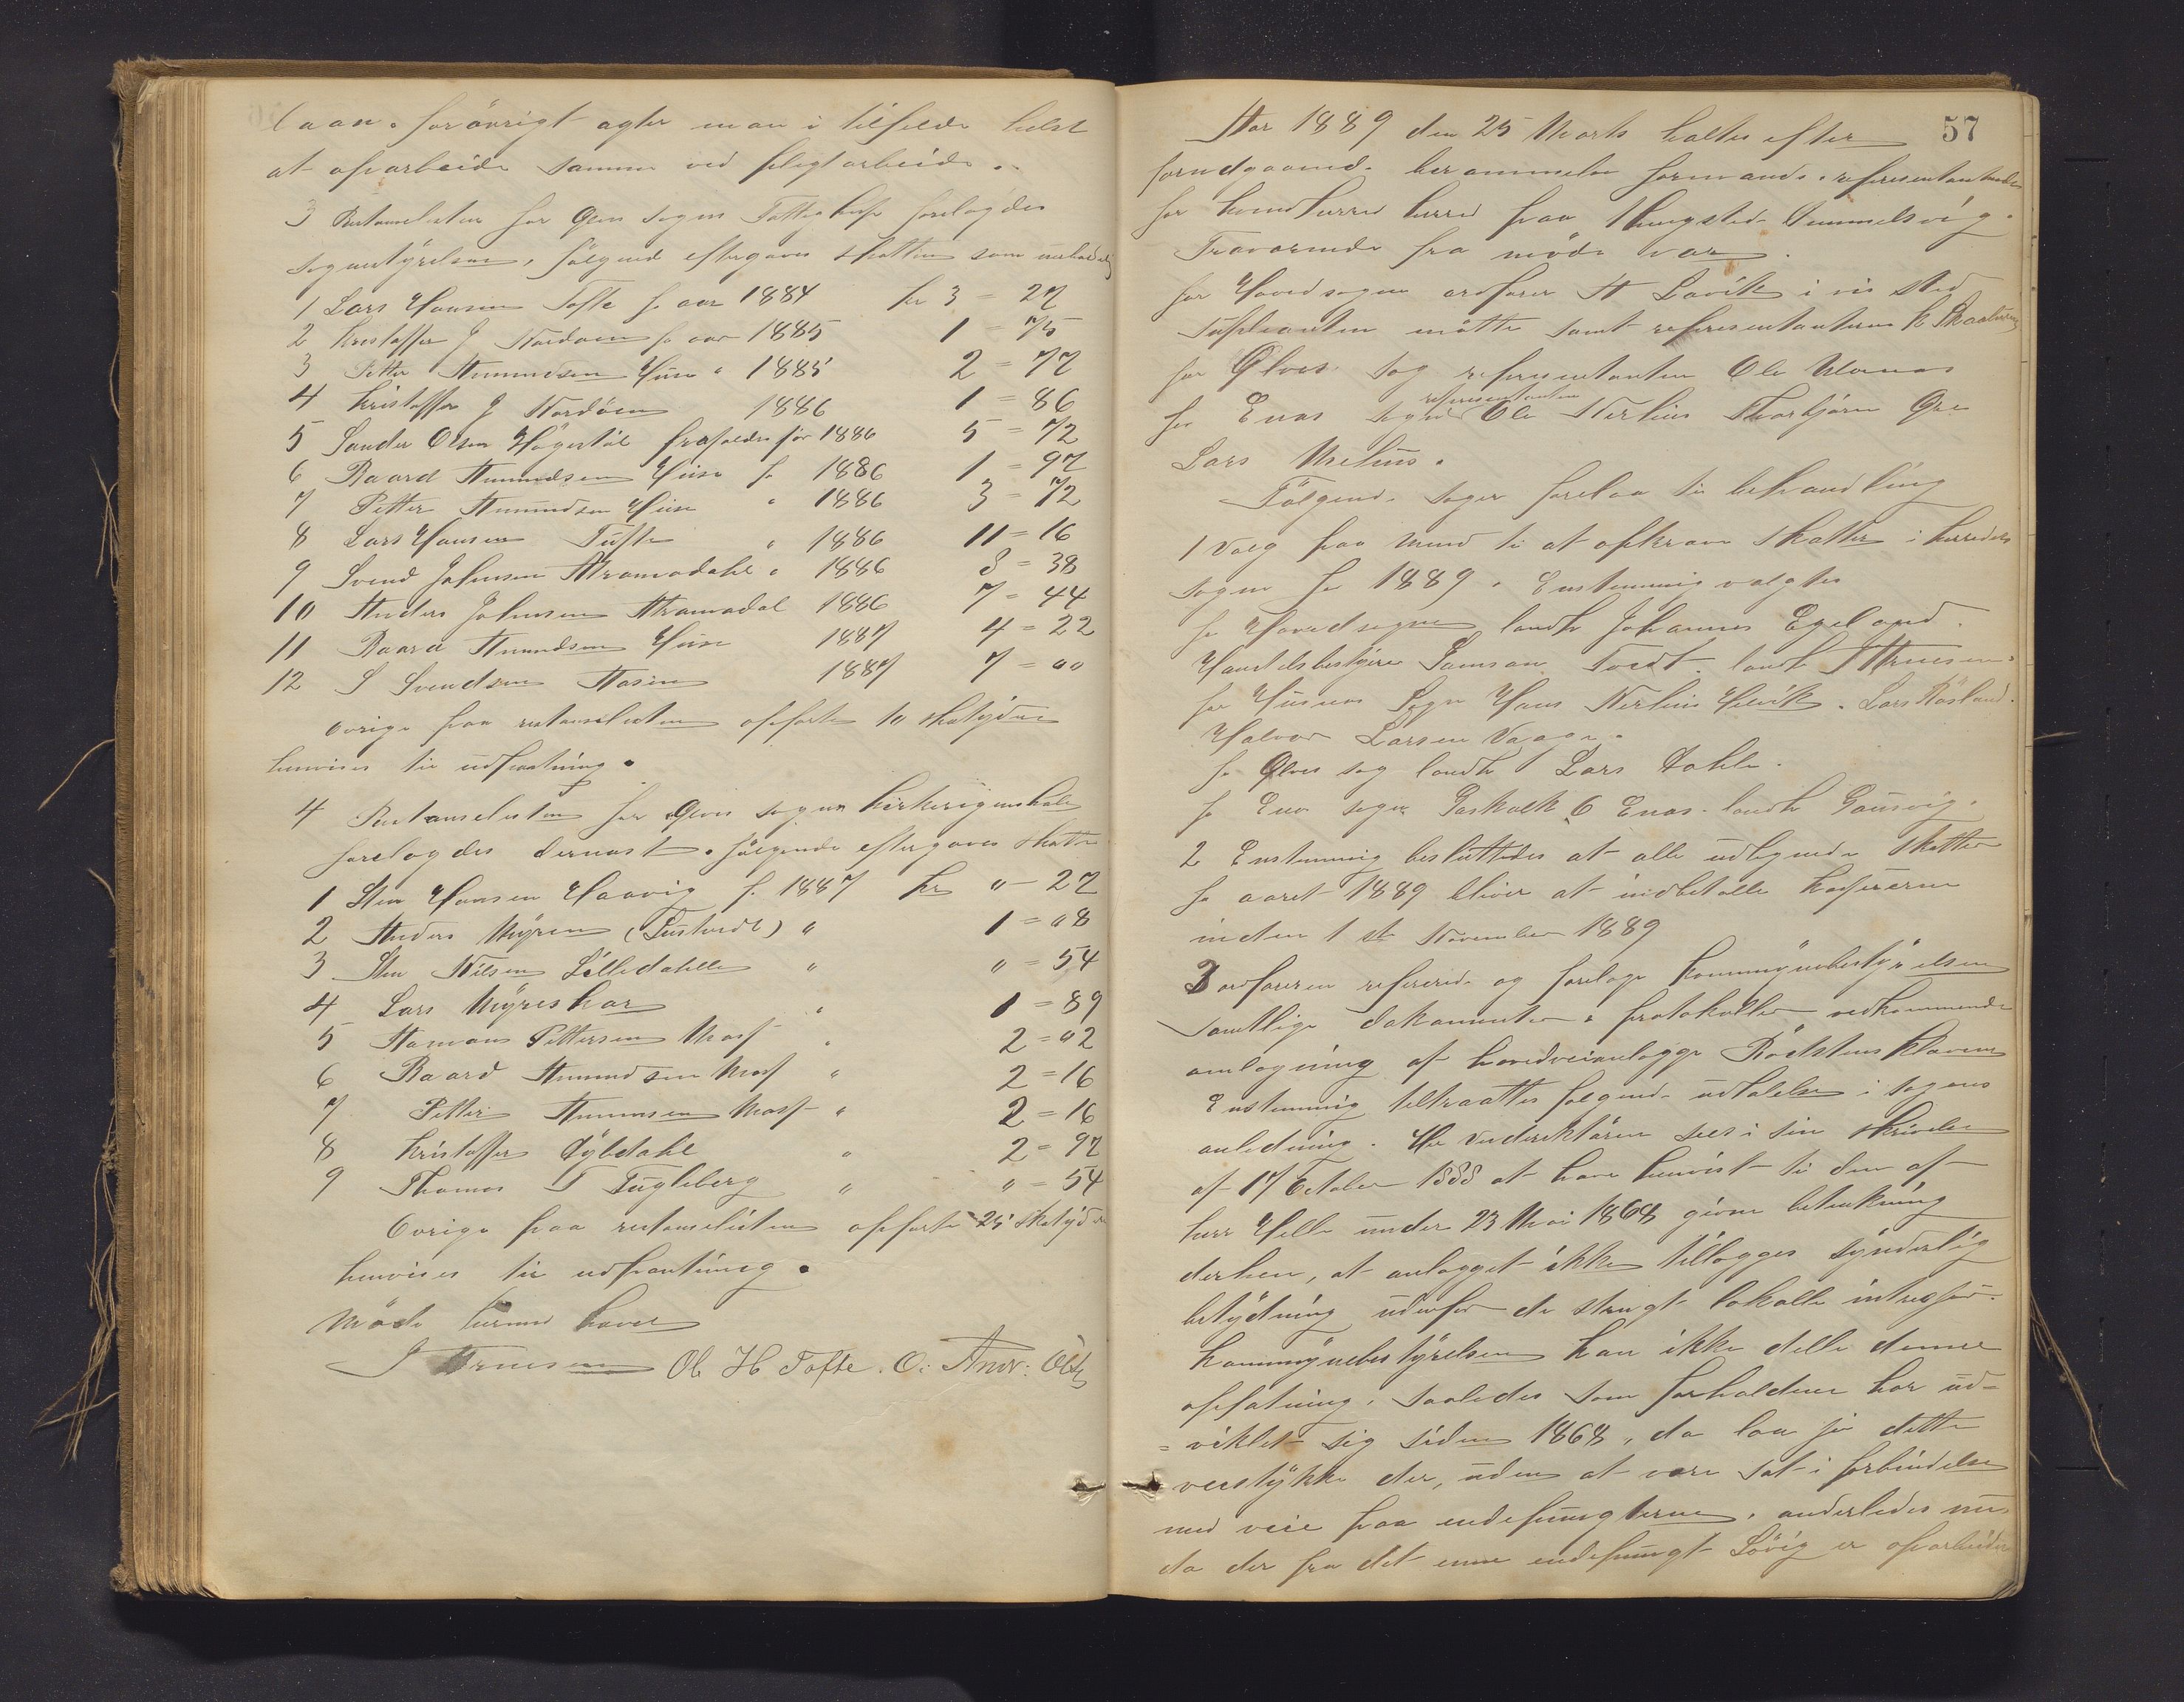 laan. forövrigt agter man i tilfelde helst
at oparbeide samme ved pligtarbeide.
3 Restanselisten for Ølves sogns Fattigkasse forelagdes
sognestyrelsen, fölgende eftergaves skatten som uerholdelig
1 Lars Hansen Tofte for aar 1884 kr 3 = 27
2 Kristoffer J Nordöen for aar 1885 1 = 75
3 Petter Amundsen Huse " 1885 2 = 77
4 Kristoffer J Nordöen 1886 1 = 86
5 Sander Olsen Högestöl frafaldes för 1886 5 = 72
6 Baard Amundsen Huse for 1886 1 = 97
7 Petter Amundsen Huse " 1886 3 = 72
8 Lars Hansen Tufte " 1886 11 = 16
9 Svend Johnsen Akramadahl " 1886 8 = 38
10 Anders Johnsen Akramadal 1886 7 = 44
11 Baard Amundsen Huse 1887 4 = 22
12 S Svendsen Aasen 1887 7 = 00
övrige paa restanselisten opförte 10 skatydere
henvises til udpantning.
4 Restanselisten for Ølves sogns kirkeregnskab
forelagdes dernæst. fölgende eftergaves skatten
1 Sten Hansen Haavig f. 1887 kr " - 27
2 Anders Myren (Tustvedt) " 1 = 08
3 Sten Nilsen Lilledahlle " " = 54
4 Lars Myreskar " 1 = 89
5 Aamans Pettersen Moss " 2 = 02
6 Baard Amundsen Moss " 2 = 16
7 Petter Amundsen Moss " 2 = 16
8 Kristoffer Dybdahl " 2 = 97
9 Thomas T Fugleberg " " = 54
Övrige paa restanselisten opförte 25 skatydere
henvises til udpantning.
Möde hermed hævet
J Arnesen Ol H Tofte. O. Andr: Øks
57
Aar 1889 den 25 Marts holtes efter
forudgaaende berammelse formands. representantmöde
for Kvindherred herred paa thingstedet Sunnelsvig.
Fraværende fra möde var
for Hovedsognet ordförer A Lavik i vis sted
Supleanten mötte samt representanterne K Skaaluren
for Ølves sog representanten Ole Ulvenes
for Enæs sogn representanten Ole Nerhus Thorbjörn Øre
Lars Mehus.
Fölgende sager forelaa til behandling
1 Valg paa mænd til at opkræve skatter i herredets
sogne for 1889. Enstemmig valgtes
for Hovedsognet landh Johannes Egeland.
Handelsbestyrer Samson Tvedt. landh J Arnesen.
for Husnes Sogn Hans Nerhus Helvik. Lars Røsland.
Halvor Larsen Vaage.
for Ølves sog landh Lars Dahle.
for Enæs sogn Paskalk O Enæs. landh Gausvig.
2 Enstemmig besluttedes at alle udlignede skatter
for aaret 1889 bliver at indbetalle kassererne
inden 1ste November 1889
3 ordföreren refererede og forelage kommynebestyrelsen
samtlige dokumenter & protokoller vedkommende
omlægning af hovedveianlægge Rödsteins kleven
Enstemmig tiltraattes fölgende udtalelse i sagens
anledning. Hr Veidirektören sees i sin skrivelse
af 17 October 1888 at have henvist til den af
herr Helle under 23 Mai 1868 givne betænkning
derhen, at anlægget ikke tillægges synderlig
betydning udenfor de strengt lokalle intresser.
Kommynebestyrelsen kan ikke delle denne
opfatning, saaledes som forholdene har ud=
=viklet sig siden 1868, da laa jo dette
veistykke der, uden at være sat i forbindelse
med veie paa endepungterne, anderledes nu,
da der fra det enne endepungt Lövig er oparbeidet